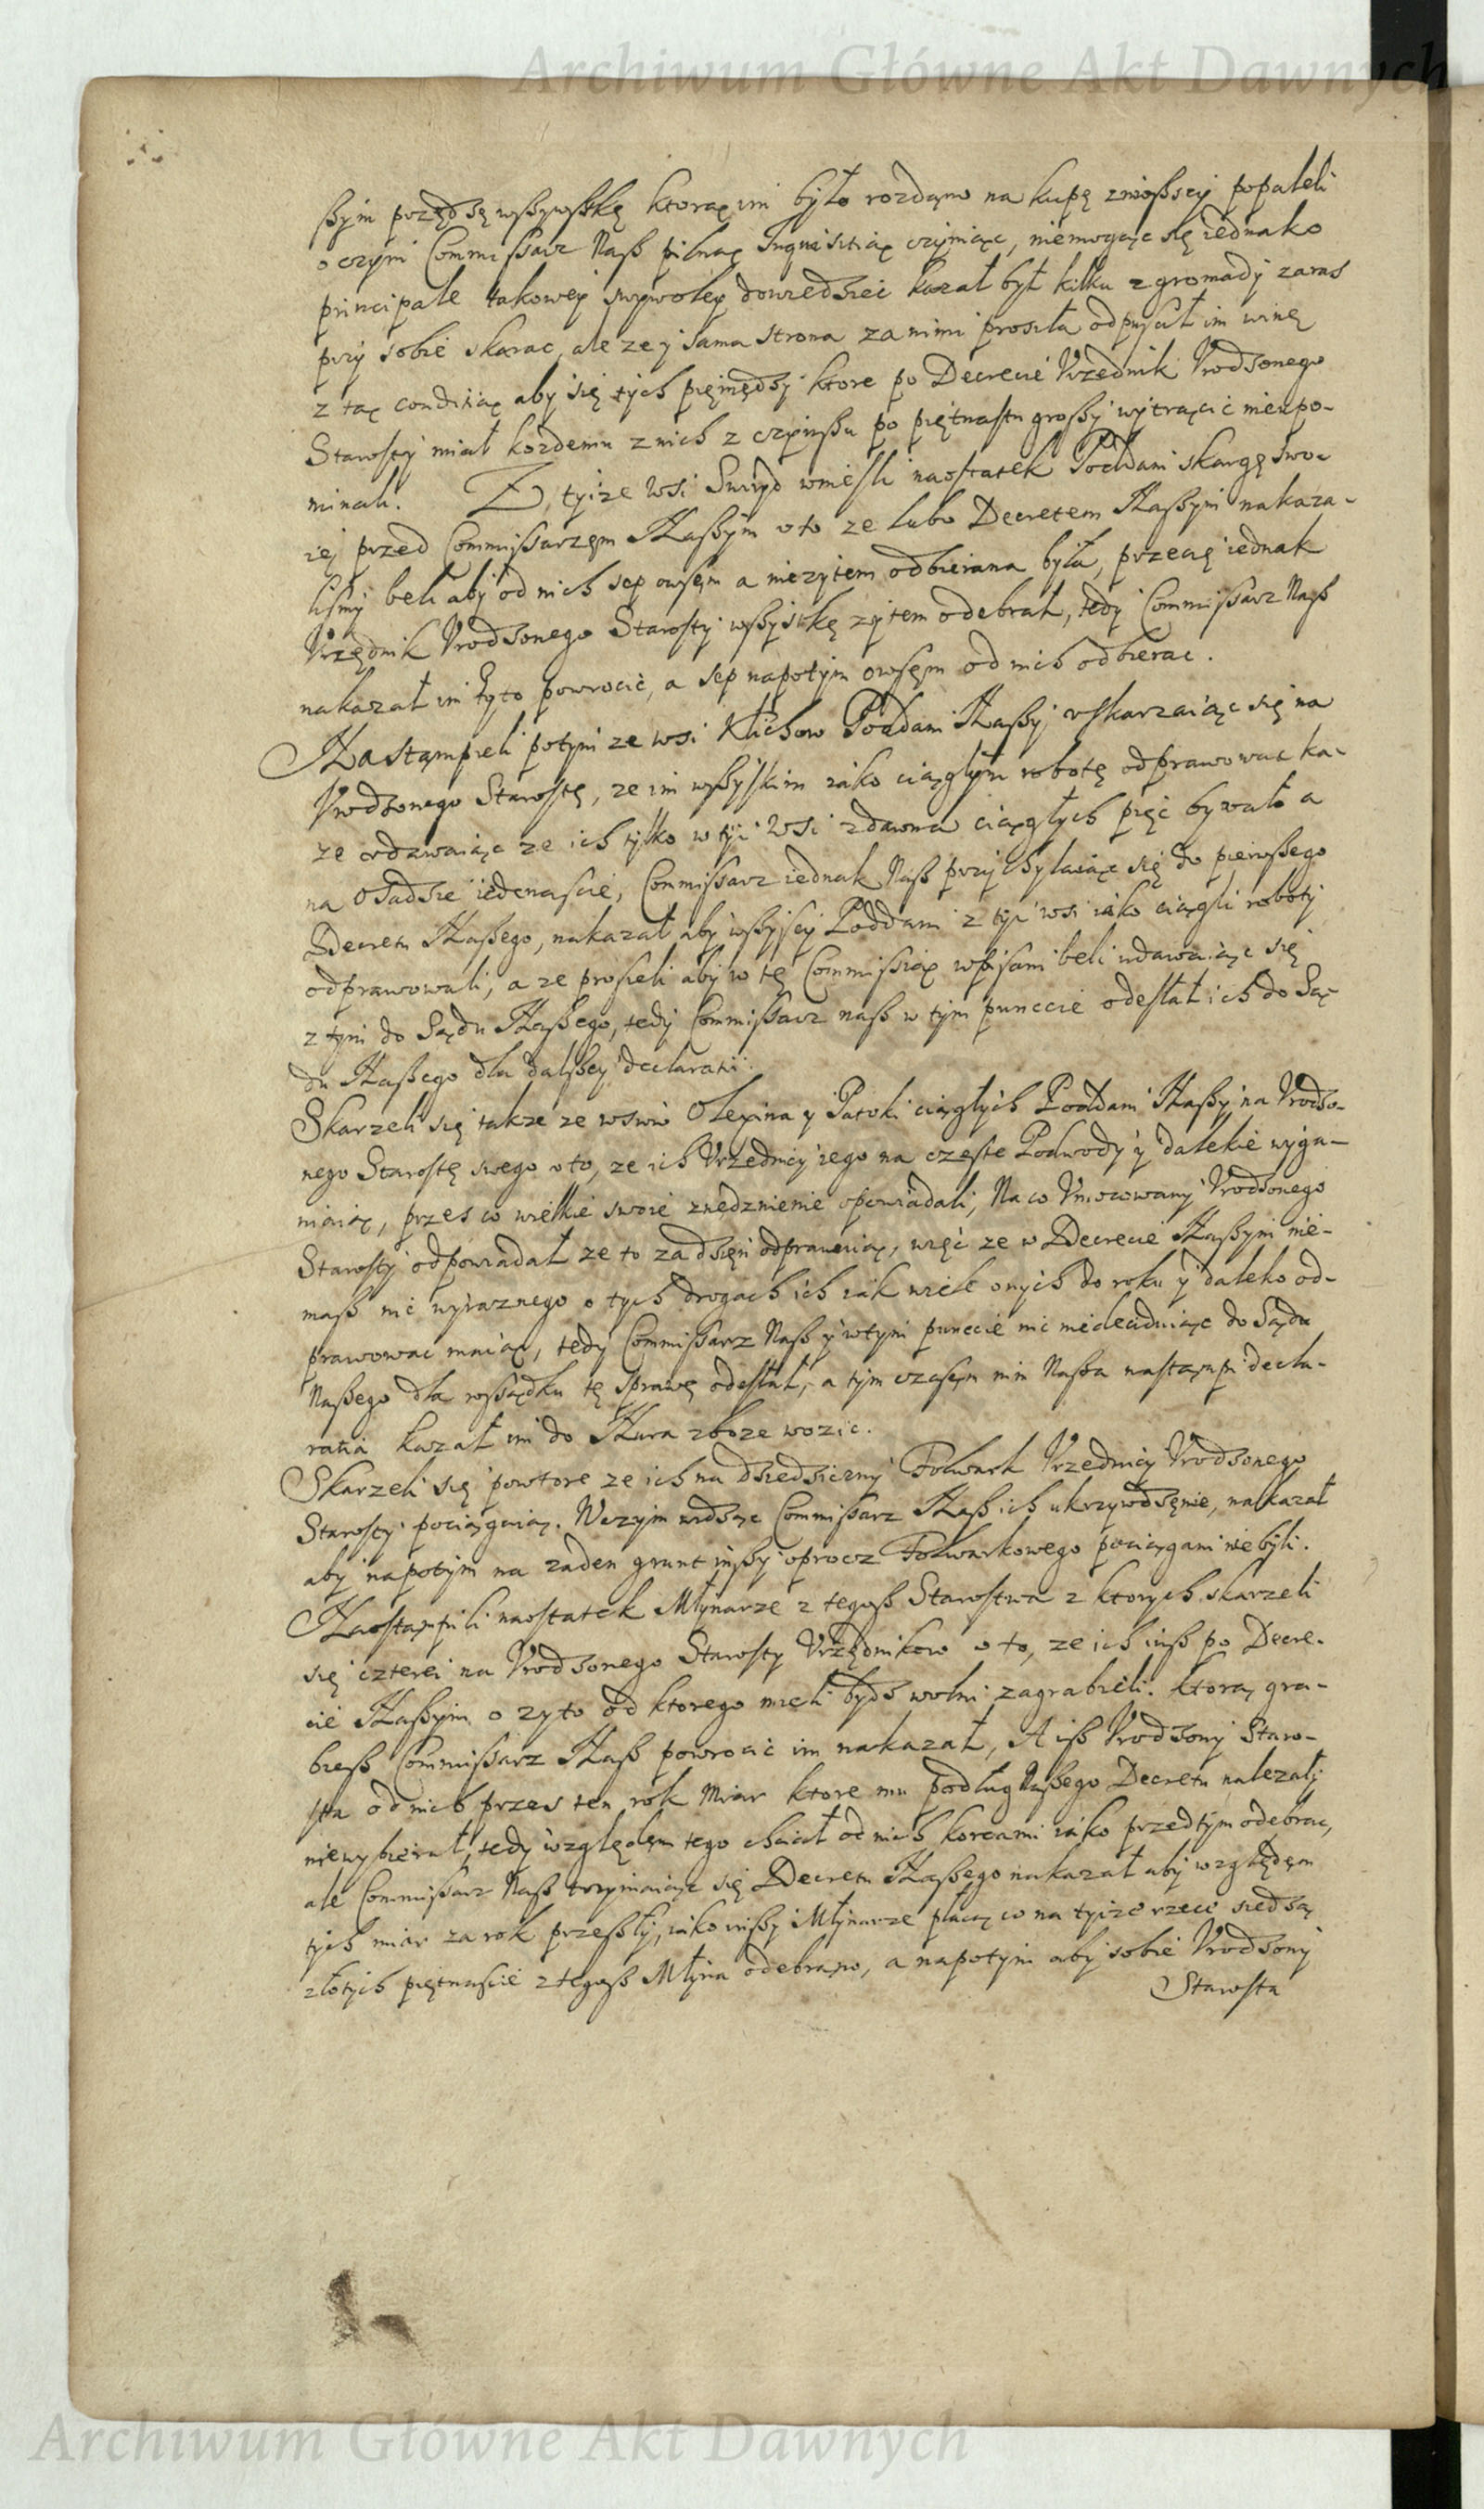 Archiwum Główne Akt Dawnych
ßym przędzę wßywßtkę ktorąm im było rozdąno na kupę zniosszy popaleli
o czym Commissarz Naß pilną Inquisitią czyniąc, niemogąc się iednako
principale takowey swywoley dowiedzieć kazał był kilku z gromady zaras
przy sobie skarac, ale ze y sama strona za nimi prosiła odpuscił im winę
z tą conditią aby się tych pięniędzy ktore po Decrecie Vrzednik Vrodzonego
Starosty miał kozdemu z nich z czyńßu po piętnastu großy wytrącić nieupo-
minali. Z tyize Wsi Swiyd wnieśli naostatek Poddani skargę swo-
iey przed Commissarzęm Naßym o to ze lubo Decretem Naßym nakaza-
liśmy beli aby od nich sep owsęm a niezytem odbierana była, przecię iednak
Vrzędnik Vrodzonego Starosty wßystkę zytem odebrał, tedy Commissarz Naß
nakazał im żyto powrocić, a sep napotym owsęm od nich odbierac.
Nastąmpieli potym ze wsi Klichow Poddani Naßy vskarzaiąc się na
Vrodzonego Starostę, ze im wßyskim iako ciągłym robotę odprawowac ka-
ze udawaiąc ze ich tylko w tyi Wsi zdawna ciągłych pięć bywało a
na Osadzie iedenascie, Commissarz iednak Naß przychylaiąc się do pierwßego
Decretu Naßego, nakazał aby wßyscy Poddani z tyi wsi iako ciągli roboty
odprawowali, a ze prosieli aby w tę Commissią wpisani beli udawaiąc się
z tym do Sądu Naßego, tedy Commissarz naß w tym punccie odesłał ich do Są-
du Naßego dla dalßey declaratii.
Skarzeli się takze ze wśiow Olexina y Patoki ciągłych Poddani Naßy na Vrodzo-
nego Starostę swego o to, ze ich Vrzednicy iego na częste Podwody y dalekie wyga-
niaią, przes co wielkie swoie znędznienie opowiadali, Na co Vmocowany Vrodzonego
Starosty odpowiadał ze to za dzięń odprawuią, więć ze w Decrecie Naßym nie-
maß nic wyraznego o tych drogach ich iak wiele onych do roku y daleko od-
prawowac maią, tedy Commissarz Naß y w tym punccie nic niedeciduiąc do Sądu
Naßego dla rossądku tę sprawę odesłał, a tym czasęm nim Naßa nastąmpi decla-
ratia kazał im do Nura zboze wozic.
Skarzeli się powtore ze ich na dziedziczny Folwark Vrzednicy Vrodzonego
Starosty pociągaią. W czym widząc Commissarz Naß ich ukrzywdzęnie, nakazał
aby napotym na zaden grunt inßy oprocz Folwarkowego pociągani nie byli.
Naostąmpili naostatek Młynarze z tegoß Starostwa z ktorych skarzeli
się czterei na Vrodzonego Starosty Vrzędnikow o to, ze ich iuß po Decre-
cie Naßym o zyto od ktorego mieli bydz wolni zagrabieli. ktorą gra-
bieß Commissarz Naß powrocić im nakazał, A iß Vrodzony Staro-
sta od nich przes ten rok Miar ktore mu podług Naßego Decretu nalezały
niewybierał, tedy względęm tego chciał od nich korcami iako przedtym odebrac,
ale Commissarz Naß trzymaiąc się Decretu Naßego nakazał aby względęm
tych miar za rok przeßły, iako inßy Młynarze płacą co na tyize rzece siedzą
złotych piętnascie z tegoß Młyna odebrąno, a napotym aby sobie Vrodzony
Starosta
Archiwum Główne Akt Dawnych